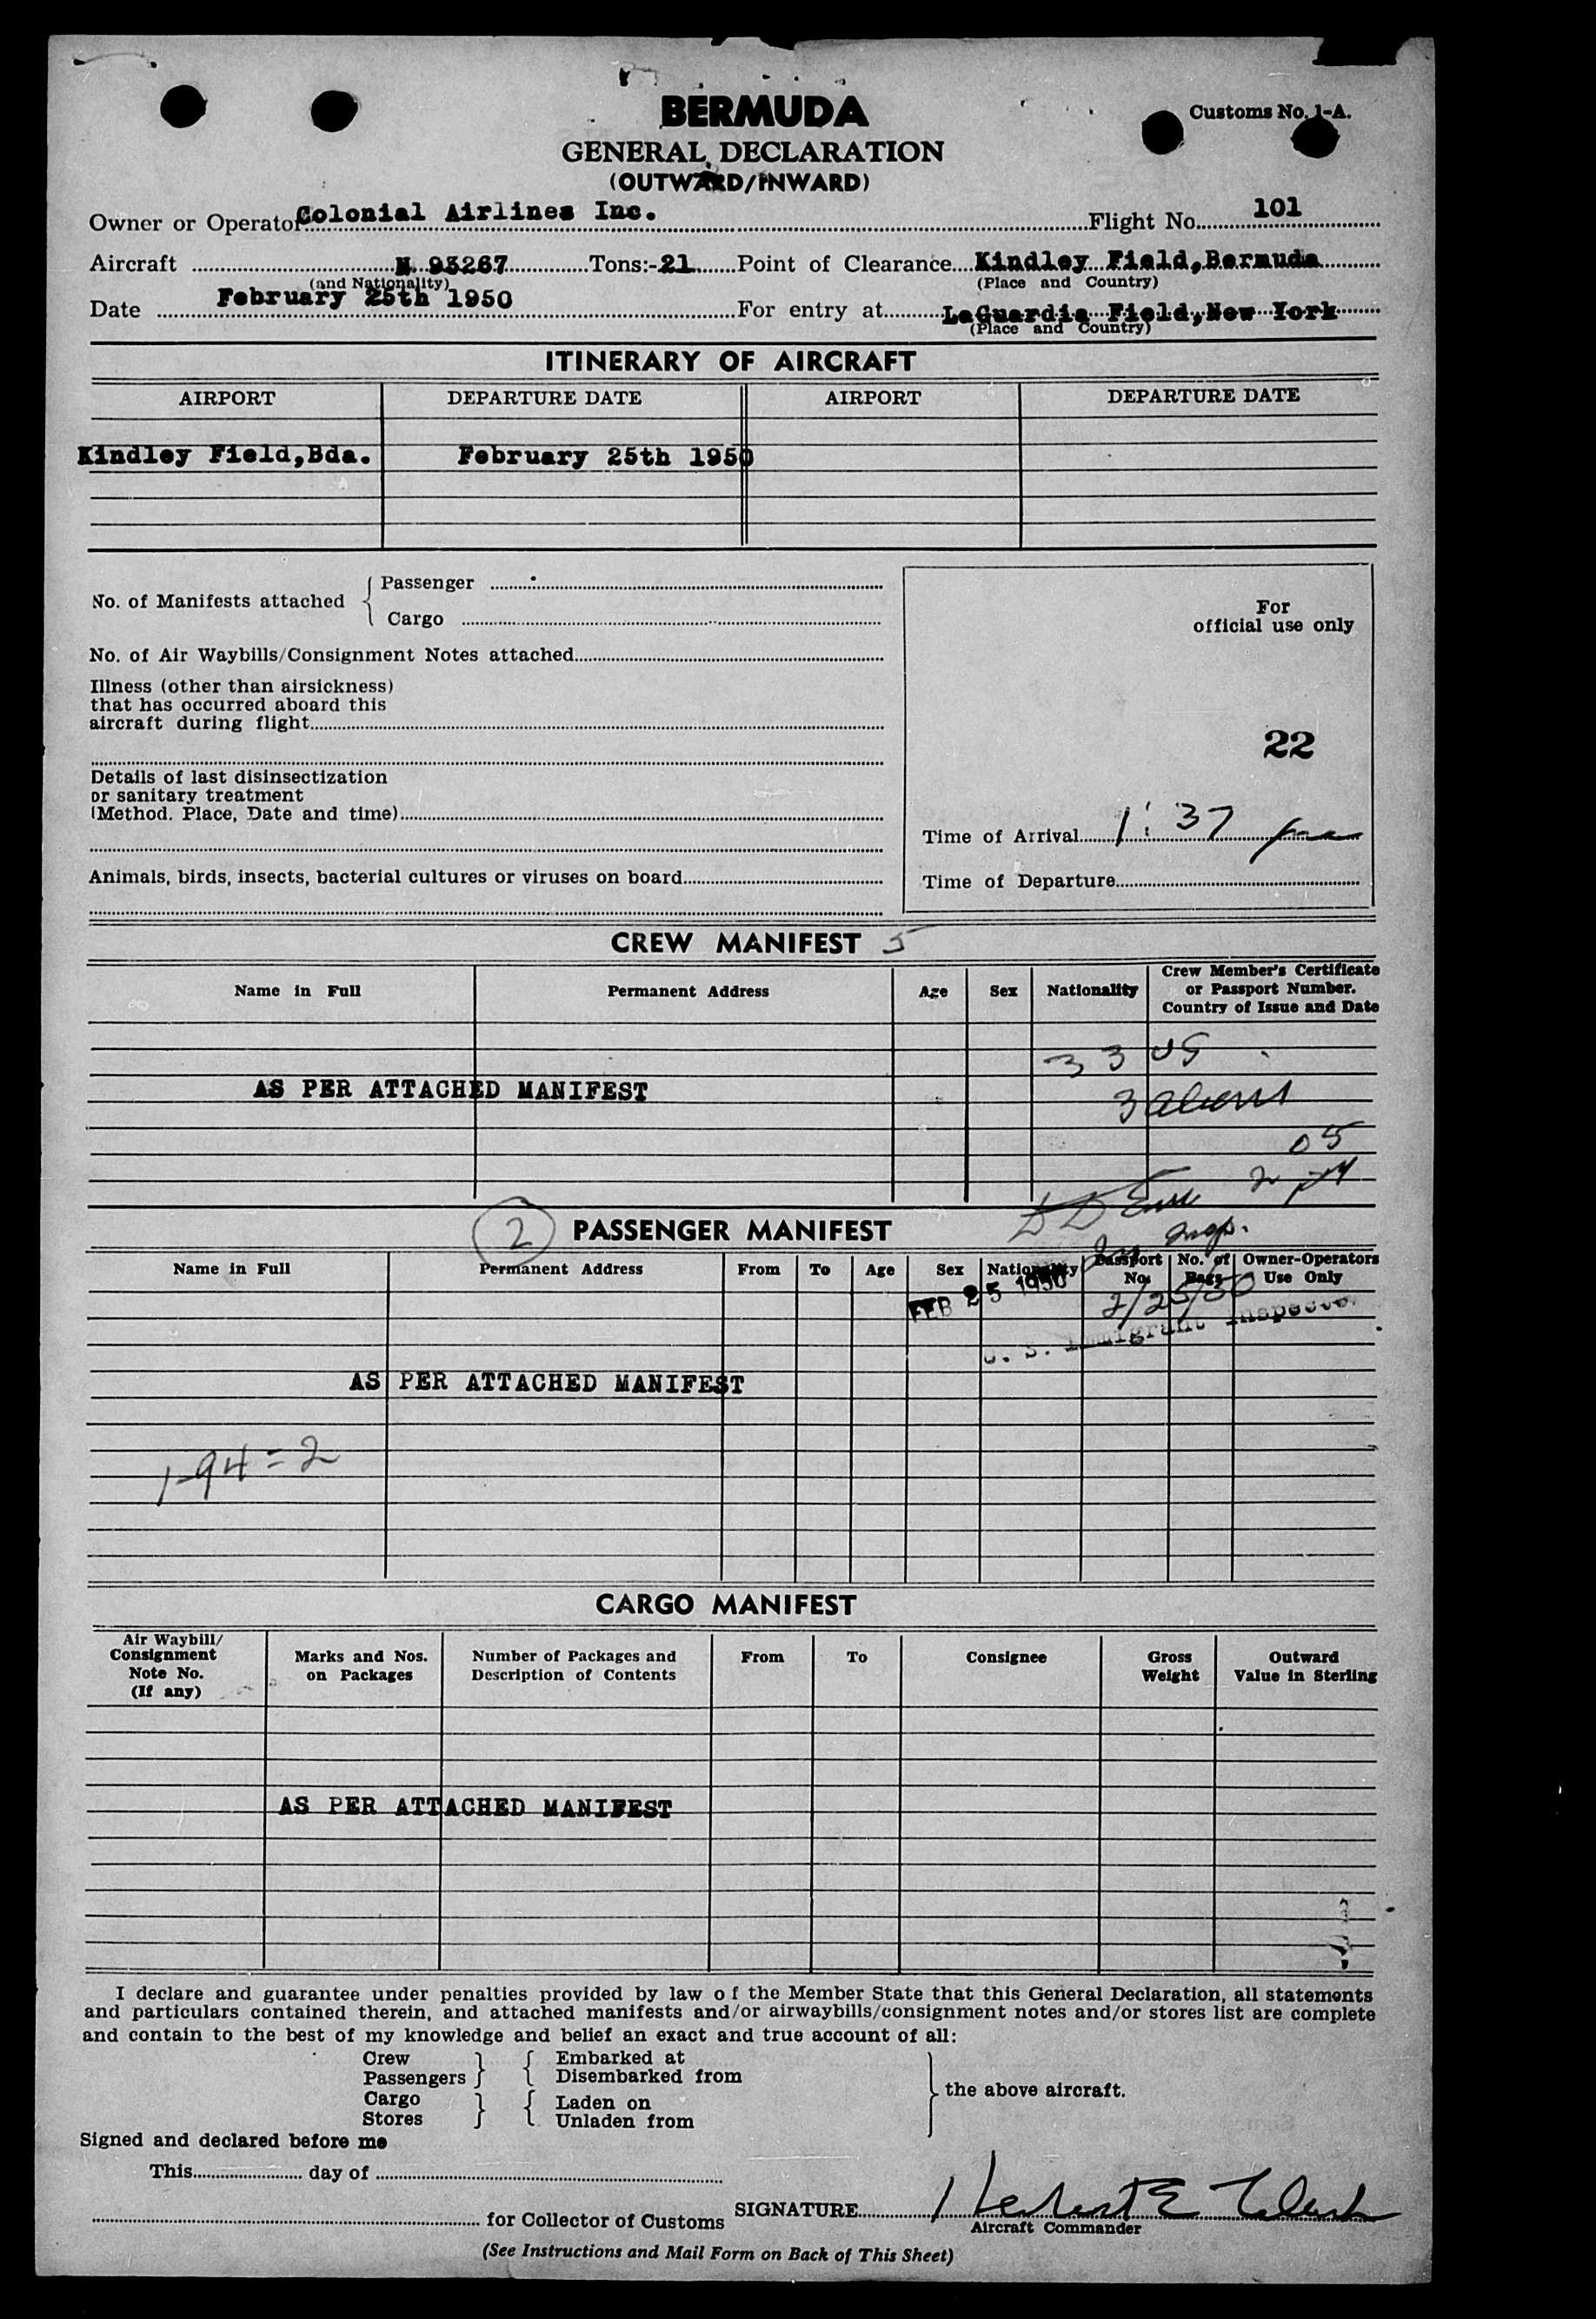 BERMUDA
Customs No. 1-A.
GENERAL DECLARATION
(OUTWARD/INWARD)
Owner or Operator Colonial Airlines Inc. Flight No. 101
Aircraft N 93267 Tons:-21 Point of Clearance Kindley Field,Bermuda
(and Nationality) (Place and Country)
Date February 25th 1950 For entry at LaGuardia Field,New York
(Place and Country)
ITINERARY OF AIRCRAFT
AIRPORT DEPARTURE DATE AIRPORT DEPARTURE DATE
Kindley Field,Bda. February 25th 1950
No. of Manifests attached { Passenger
Cargo
For
official use only
No. of Air Waybills/Consignment Notes attached
Illness (other than airsickness)
that has occurred aboard this
aircraft during flight
22
Details of last disinsectization
or sanitary treatment
(Method. Place, Date and time)
Time of Arrival 1:37 pm
Animals, birds, insects, bacterial cultures or viruses on board
Time of Departure
CREW MANIFEST 5
Name in Full Permanent Address Age Sex Nationality Crew Member's Certificate
or Passport Number.
Country of Issue and Date
33 US
AS PER ATTACHED MANIFEST
3 aliens
05
2
2 PASSENGER MANIFEST
Insp.
Name in Full Permanent Address From To Age Sex Nationality Passport No. No. of Bags Owner-Operators Use Only
FEB 25 1950 2/25/50
U. S. Immigrant Inspector
AS PER ATTACHED MANIFEST
I-94 = 2
CARGO MANIFEST
Air Waybill/
Consignment
Note No.
(If any)
Marks and Nos.
on Packages
Number of Packages and
Description of Contents
From To Consignee
Gross
Weight
Outward
Value in Sterling
AS PER ATTACHED MANIFEST
I declare and guarantee under penalties provided by law of the Member State that this General Declaration, all statements
and particulars contained therein, and attached manifests and/or airwaybills/consignment notes and/or stores list are complete
and contain to the best of my knowledge and belief an exact and true account of all:
Crew } { Embarked at
Passengers } { Disembarked from
} the above aircraft.
Cargo } { Laden on
Stores } { Unladen from
Signed and declared before me
This day of
SIGNATURE
for Collector of Customs
Aircraft Commander
(See Instructions and Mail Form on Back of This Sheet)